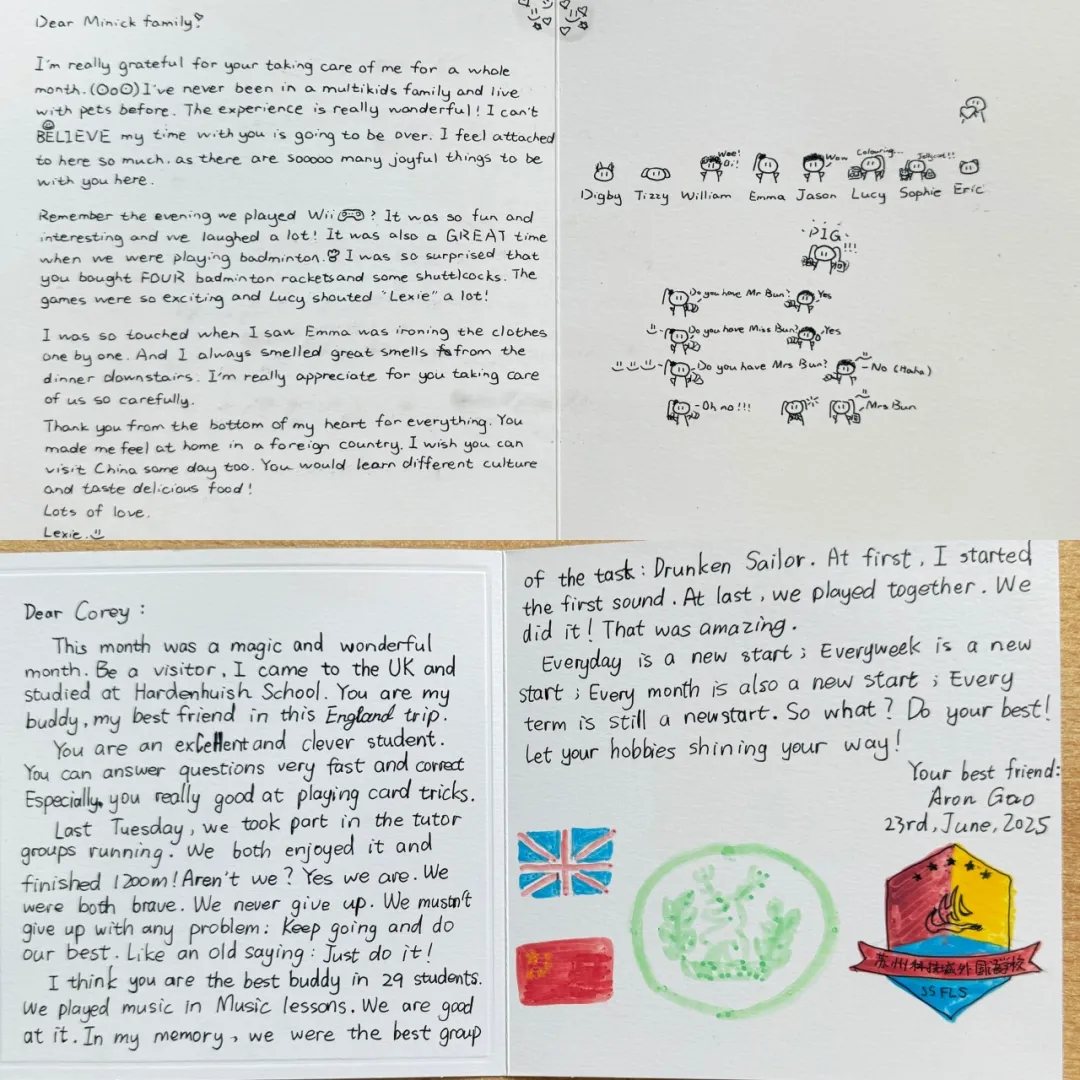 Dear Minick family!
I'm really grateful for your taking care of me for a whole
month. (OoO) I've never been in a multikids family and live
with pets before. The experience is really wanderful! I can't
BELIEVE my time with you is going to be over. I feel attached
to here so much. as there are sooooo many joyful things to be
with you here.
Remember the evening we played Wii? It was so fun and
interesting and we laughed a lot! It was also a GREAT time
when we were playing badminton. I was so surprised that
you bought FOUR badminton rackets and some shuttlcocks. The
games were so exciting and Lucy shouted "Lexie" a lot!
I was so touched when I saw Emma was ironing the clothes
one by one. And I always smelled great smells from the
dinner downstairs. I'm really appreciate for you taking care
of us so carefully.
Thank you from the bottom of my heart for everything. You
made me feel at home in a foreign country. I wish you can
visit China some day too. You would learn different culture
and taste delicious food!
Lots of love.
Lexie.
Wee! Oi!
Wow
Colouring...
Jellycat!!
Digby Tizzy William Emma Jason Lucy Sophie Eric
PIG
!!!
Do you have Mr Bun? Yes
Do you have Miss Bun? Yes
Do you have Mrs Bun? No (Haha)
Oh no!!! Mrs Bun
Dear Corey:
This month was a magic and wonderful
month. Be a visitor, I came to the UK and
studied at Hardenhuish School. You are my
buddy, my best friend in this England trip.
You are an excellent and clever student.
You can answer questions very fast and correct
Especially, you really good at playing card tricks.
Last Tuesday, we took part in the tutor
groups running. We both enjoyed it and
finished 1200m! Aren't we? Yes we are. We
were both brave. We never give up. We mustn't
give up with any problem: Keep going and do
our best. Like an old saying: Just do it!
I think you are the best buddy in 29 students.
We played music in Music lessons. We are good
at it. In my memory, we were the best group
of the task: Drunken Sailor. At first, I started
the first sound. At last, we played together. We
did it! That was amazing.
Everyday is a new start; Everyweek is a new
start; Every month is also a new start; Every
term is still a newstart. So what? Do your best!
Let your hobbies shining your way!
Your best friend:
Aron Gao
23rd, June, 2025
苏州科技城外国语学校
SSFLS